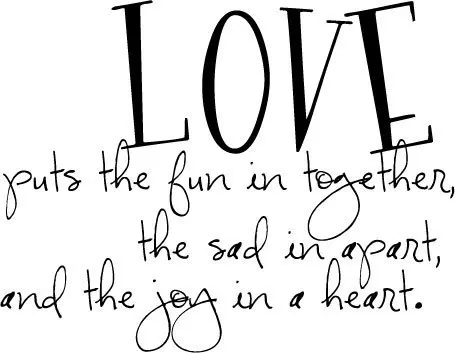 LOVE
puts the fun in together,
the sad in apart,
and the joy in a heart.